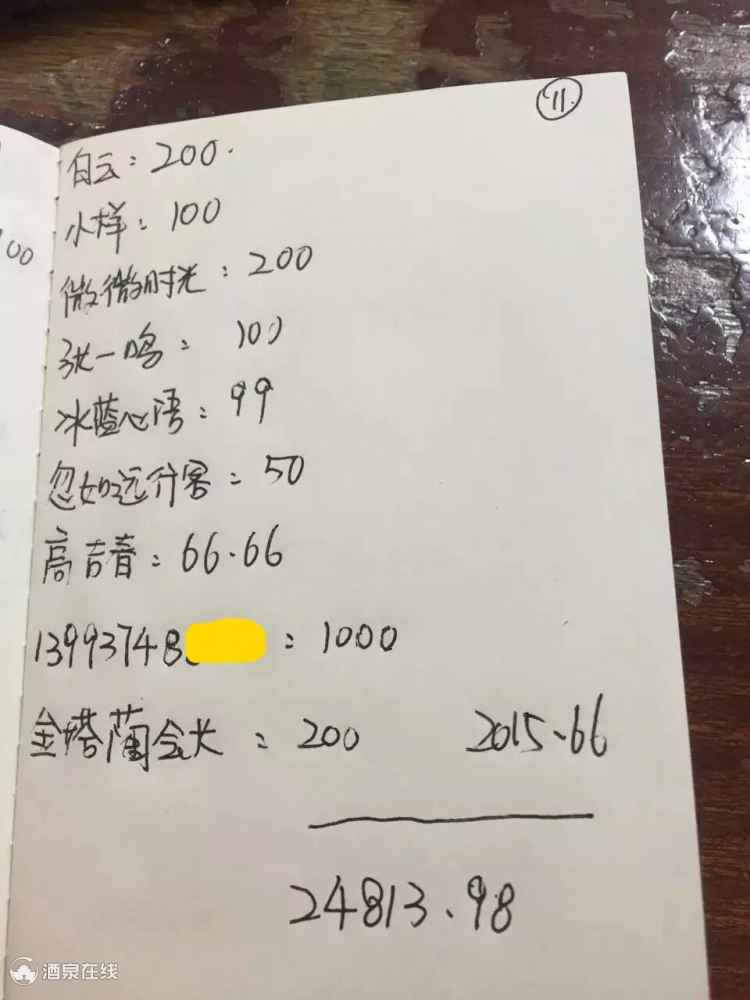 11.
00
白云：200.
小样：100
微微时光：200
张一鸣：100
冰蓝心语：99
忽如远行客：50
高吉春：66.66
13993748 ：1000
金塔蔺会长：200 2015.66
24813.98
酒泉在线